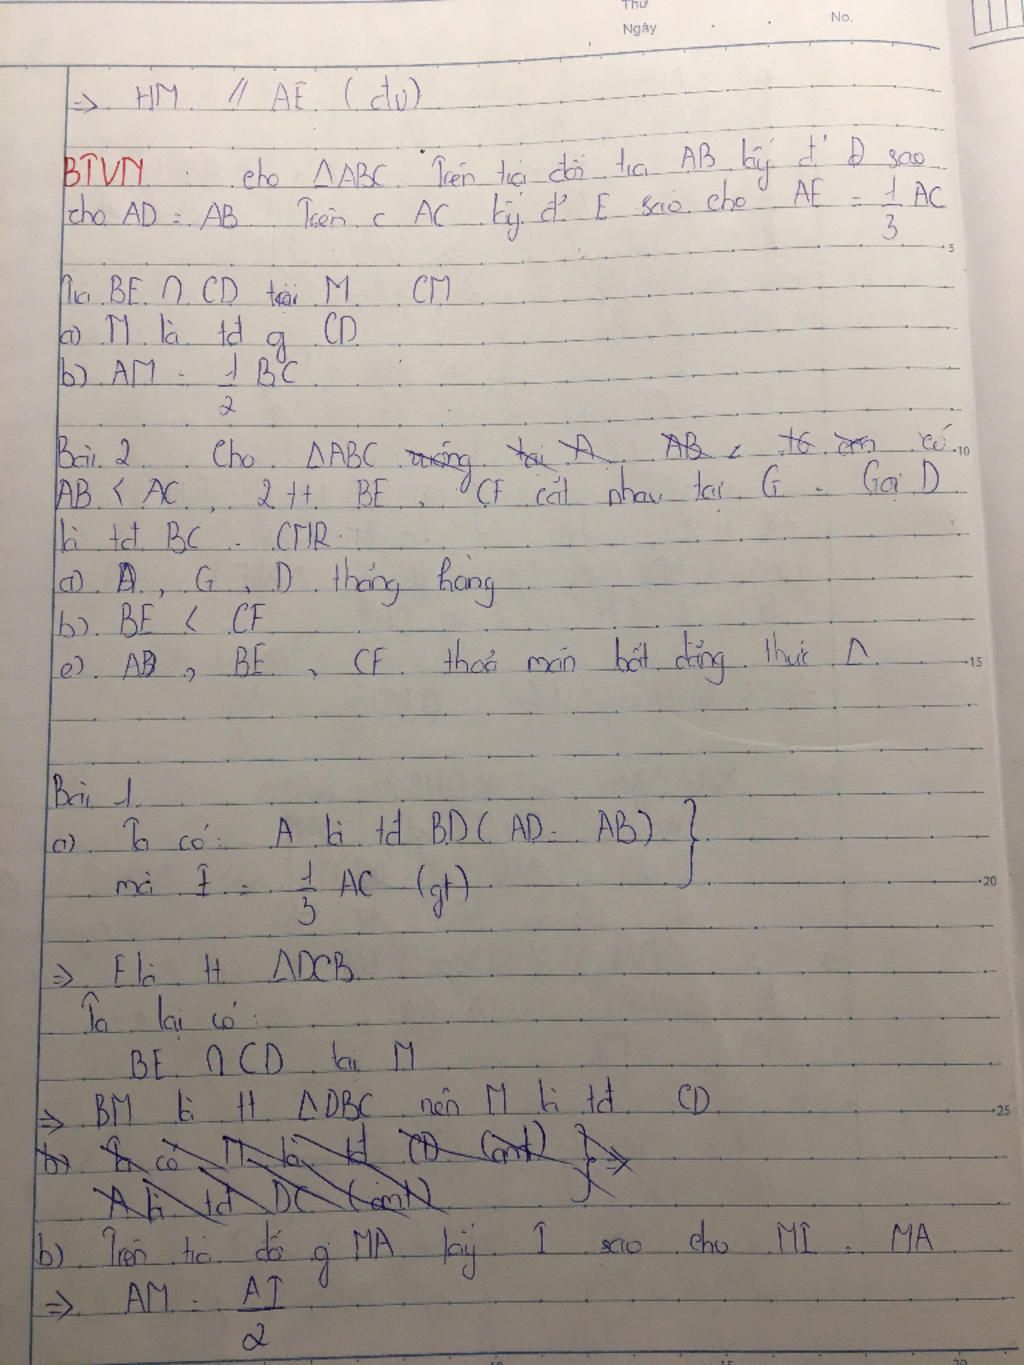 Thứ
Ngày
No.
=> HM // AE. (đv)
BTVN : cho ΔABC. Trên tia đối tia AB lấy đ' D sao
cho AD = AB. Trên c AC lấy đ' E sao cho AE = 1/3 AC
5
Tia BE ∩ CD tại M. CM
a) M là tđ g CD
b) AM = 1/2 BC
Bài 2. Cho ΔABC vuông tại A AB < có
10
AB < AC, 2 tt BE, CF cắt nhau tại G. Gọi D
là tđ BC. CMR.
a). A, G, D thẳng hàng
b). BE < CF
c). AD, BE, CF thoả mãn bất đẳng thức Δ
15
Bài 1.
a). Ta có: A là tđ BD (AD = AB) }
mà = 1/3 AC (gt)
20
=> E là tt ΔDCB
Ta lại có:
BE ∩ CD tại M
=> BM là tt ΔDBC nên M là tđ CD
25
b) Ta có M là tđ CD (cmt) } =>
A là tđ DC (cmt)
b) Trên tia đối g MA lấy I sao cho MI = MA
=> AM = AI/2